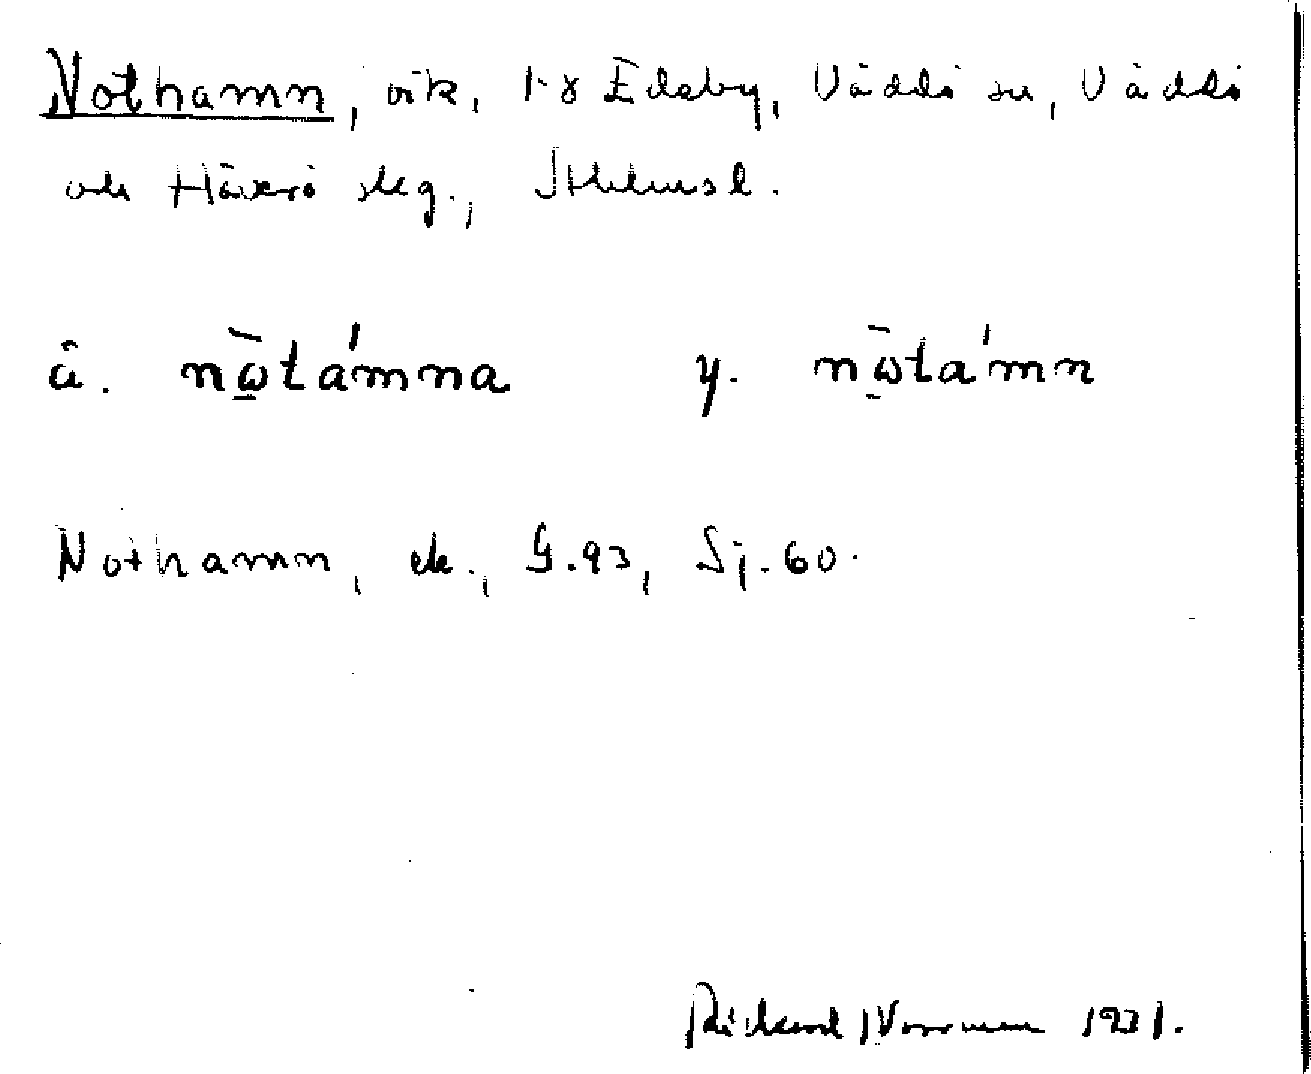 Nothamn, vik, 1-8 Edeby, Väddö sn, Väddö
och Häverö skg., Sthlmsl.
ä. nω̠̄támna y. nω̠̄támn
Nothamn, ek., G.93, Sj.60.
Rickard 1931.